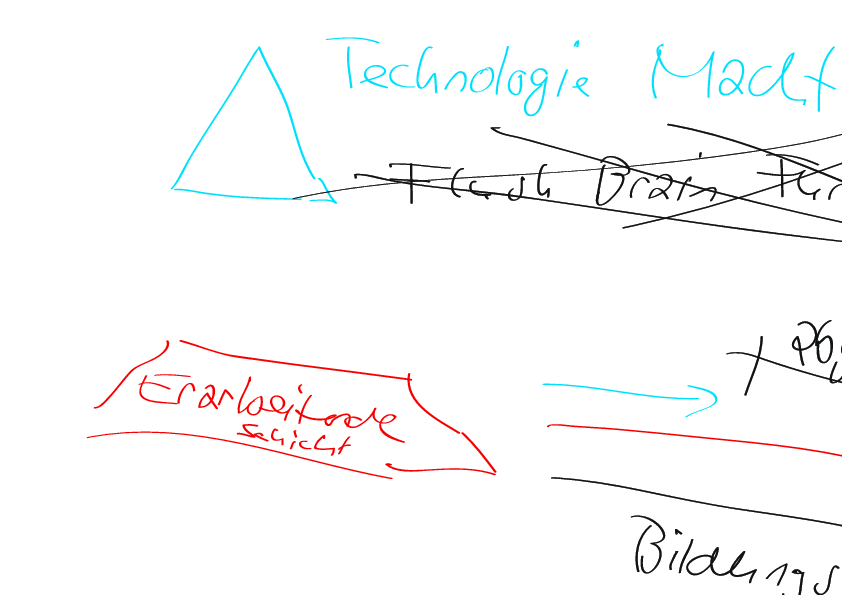 Technologie Macht
Flash Brain
Erarbeitende
schicht
Bildungs